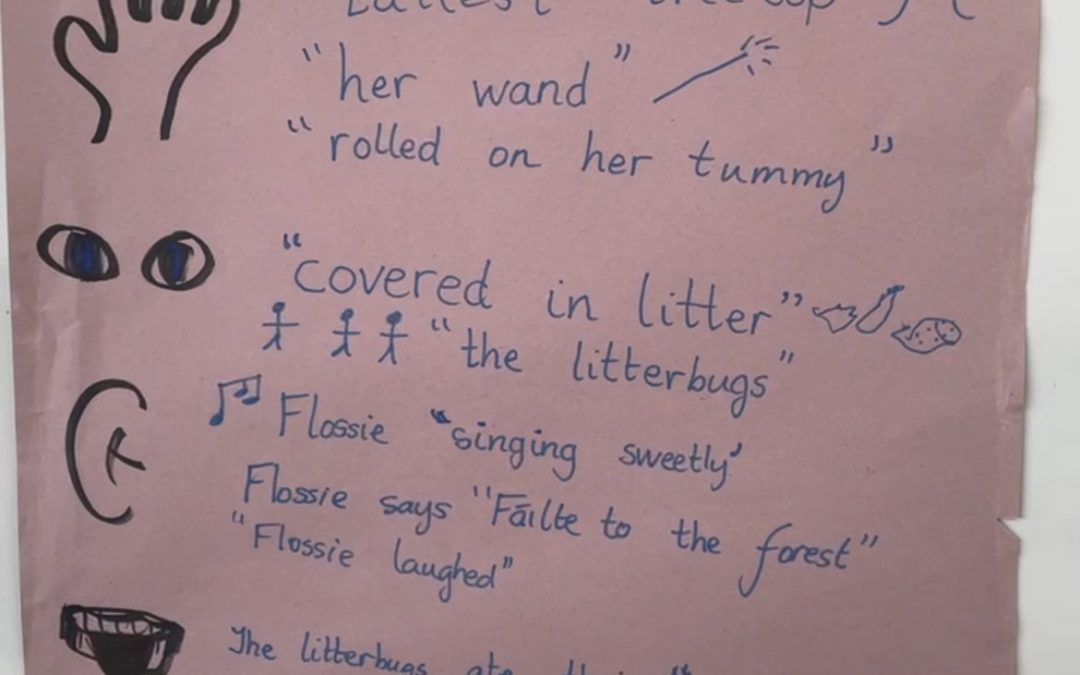 "her wand"
"rolled on her tummy"
"covered in litter"
"the litterbugs"
Flossie "singing sweetly"
Flossie says "Fáilte to the forest"
"Flossie laughed"
The litterbugs ate